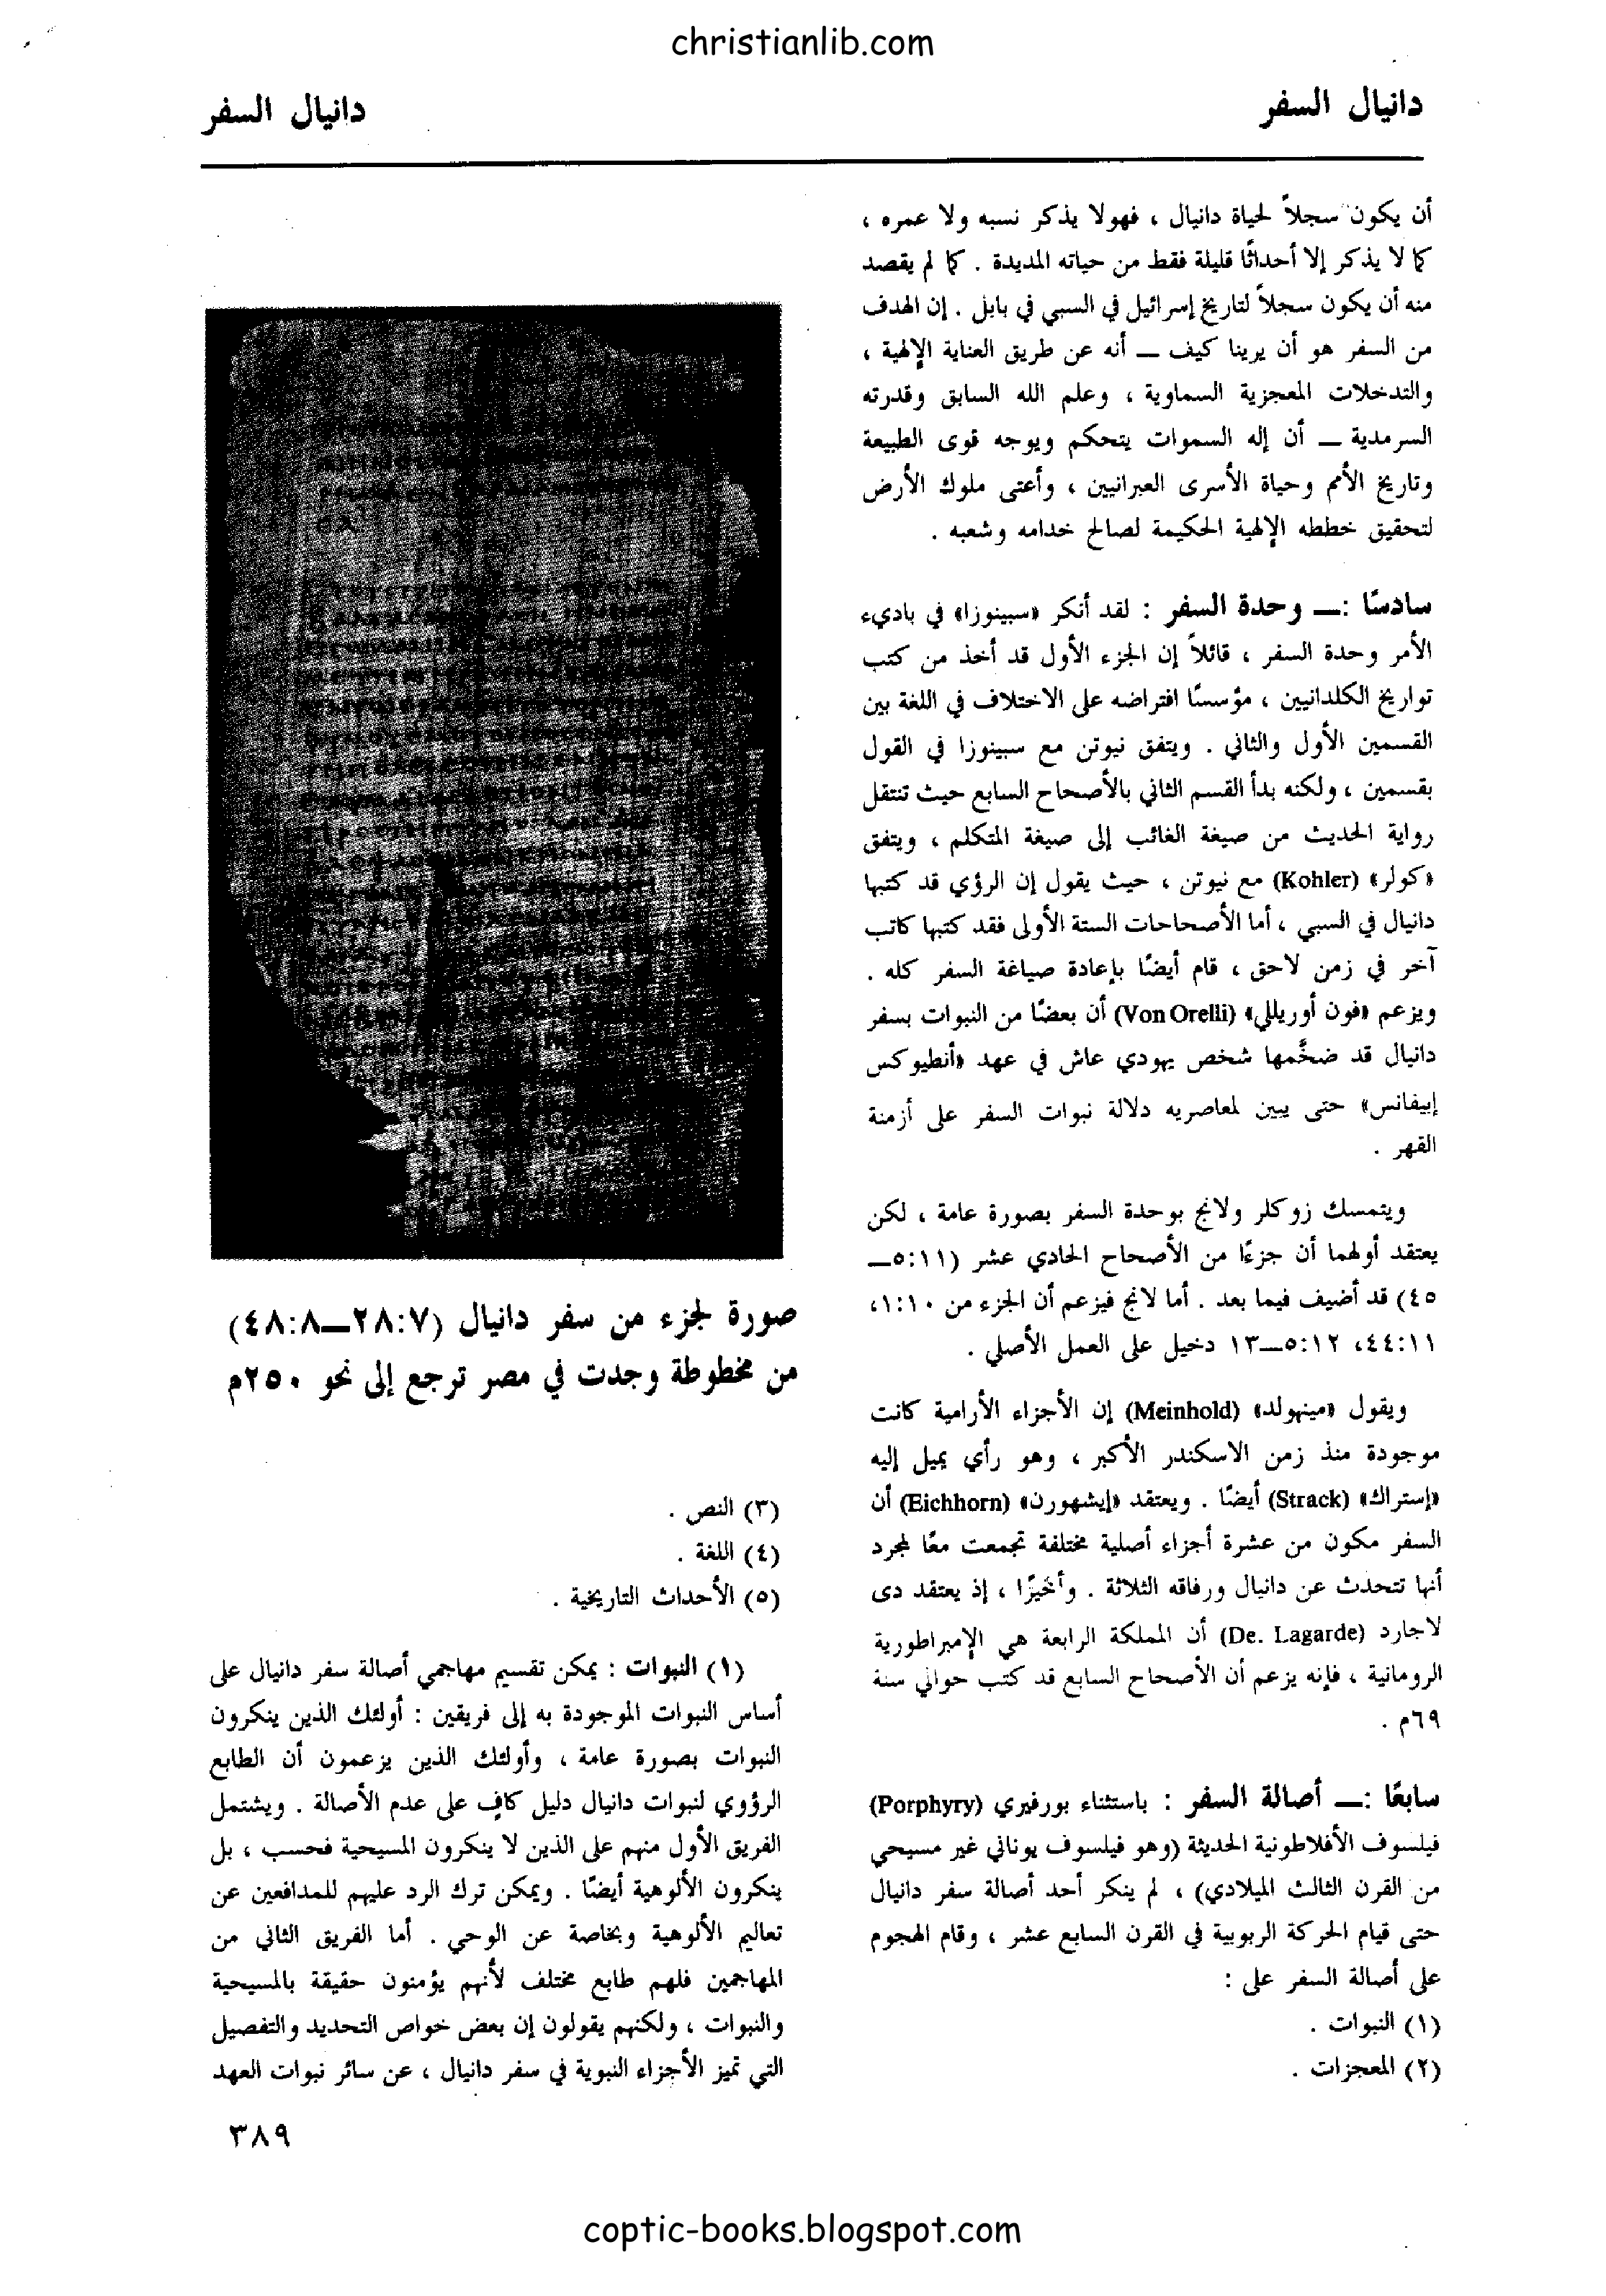 christianlib.com
دانيال السفر
دانيال السفر
أن يكون سجلاً لحياة دانيال ، فهولا يذكر نسبه ولا عمره ،
كما لا يذكر إلا أحداثًا قليلة فقط من حياته المديدة . كما لم يقصد
منه أن يكون سجلاً لتاريخ إسرائيل في السبي في بابل . إن الهدف
من السفر هو أن يرينا كيف ــ أنه عن طريق العناية الإلهية ،
والتدخلات المعجزية السماوية ، وعلم الله السابق وقدرته
السرمدية ــ أن إله السموات يتحكم ويوجه قوى الطبيعة
وتاريخ الأمم وحياة الأسرى العبرانيين ، وأعتى ملوك الأرض
لتحقيق خططه الإلهية الحكيمة لصالح خدامه وشعبه .
سادسًا :ــ وحدة السفر : لقد أنكر «سبينوزا» في باديء
الأمر وحدة السفر ، قائلاً إن الجزء الأول قد أخذ من كتب
تواريخ الكلدانيين ، مؤسسًا افتراضه على الاختلاف في اللغة بين
القسمين الأول والثاني . ويتفق نيوتن مع سبينوزا في القول
بقسمين ، ولكنه بدأ القسم الثاني بالأصحاح السابع حيث تنتقل
رواية الحديث من صيغة الغائب إلى صيغة المتكلم ، ويتفق
«كولر» (Kohler) مع نيوتن ، حيث يقول إن الرؤي قد كتبها
دانيال في السبي ، أما الأصحاحات الستة الأولى فقد كتبها كاتب
آخر في زمن لاحق ، قام أيضًا بإعادة صياغة السفر كله .
ويزعم «فون أوريللي» (Von Orelli) أن بعضًا من النبوات بسفر
دانيال قد ضخَّمها شخص يهودي عاش في عهد «أنطيوكس
إبيفانس» حتى يبين لمعاصريه دلالة نبوات السفر على أزمنة
القهر .
ويتمسك زوكلر ولانج بوحدة السفر بصورة عامة ، لكن
يعتقد أولهما أن جزءًا من الأصحاح الحادي عشر (١١:٥ــ
٤٥) قد أضيف فيما بعد . أما لانج فيزعم أن الجزء من ١:١٠،
٤٤:١١، ١٢:٥ــ١٣ دخيل على العمل الأصلي .
ويقول «مينهولد» (Meinhold) إن الأجزاء الأرامية كانت
موجودة منذ زمن الاسكندر الأكبر ، وهو رأي يميل إليه
«إستراك» (Strack) أيضًا . ويعتقد «إيشهورن» (Eichhorn) أن
السفر مكون من عشرة أجزاء أصلية مختلفة تجمعت معًا لمجرد
أنها تتحدث عن دانيال ورفاقه الثلاثة . وأخيرًا ، إذ يعتقد دى
لاجارد (De. Lagarde) أن المملكة الرابعة هي الإمبراطورية
الرومانية ، فإنه يزعم أن الأصحاح السابع قد كتب حوالي سنة
٦٩م .
سابعًا :ــ أصالة السفر : باستثناء بورفيري (Porphyry)
فيلسوف الأفلاطونية الحديثة (وهو فيلسوف يوناني غير مسيحي
من القرن الثالث الميلادي) ، لم ينكر أحد أصالة سفر دانيال
حتى قيام الحركة الربوبية في القرن السابع عشر ، وقام الهجوم
على أصالة السفر على :
(١) النبوات .
(٢) المعجزات .
صورة لجزء من سفر دانيال (٢٨:٧ــ٤٨:٨)
من مخطوطة وجدت في مصر ترجع إلى نحو ٢٥٠م
(٣) النص .
(٤) اللغة .
(٥) الأحداث التاريخية .
(١) النبوات : يمكن تقسيم مهاجمي أصالة سفر دانيال على
أساس النبوات الموجودة به إلى فريقين : أولئك الذين ينكرون
النبوات بصورة عامة ، وأولئك الذين يزعمون أن الطابع
الرؤوي لنبوات دانيال دليل كافٍ على عدم الأصالة . ويشتمل
الفريق الأول منهم على الذين لا ينكرون المسيحية فحسب ، بل
ينكرون الألوهية أيضًا . ويمكن ترك الرد عليهم للمدافعين عن
تعاليم الألوهية وبخاصة عن الوحي . أما الفريق الثاني من
المهاجمين فلهم طابع مختلف لأنهم يؤمنون حقيقة بالمسيحية
والنبوات ، ولكنهم يقولون إن بعض خواص التحديد والتفصيل
التي تميز الأجزاء النبوية في سفر دانيال ، عن سائر نبوات العهد
٣٨٩
coptic-books.blogspot.com